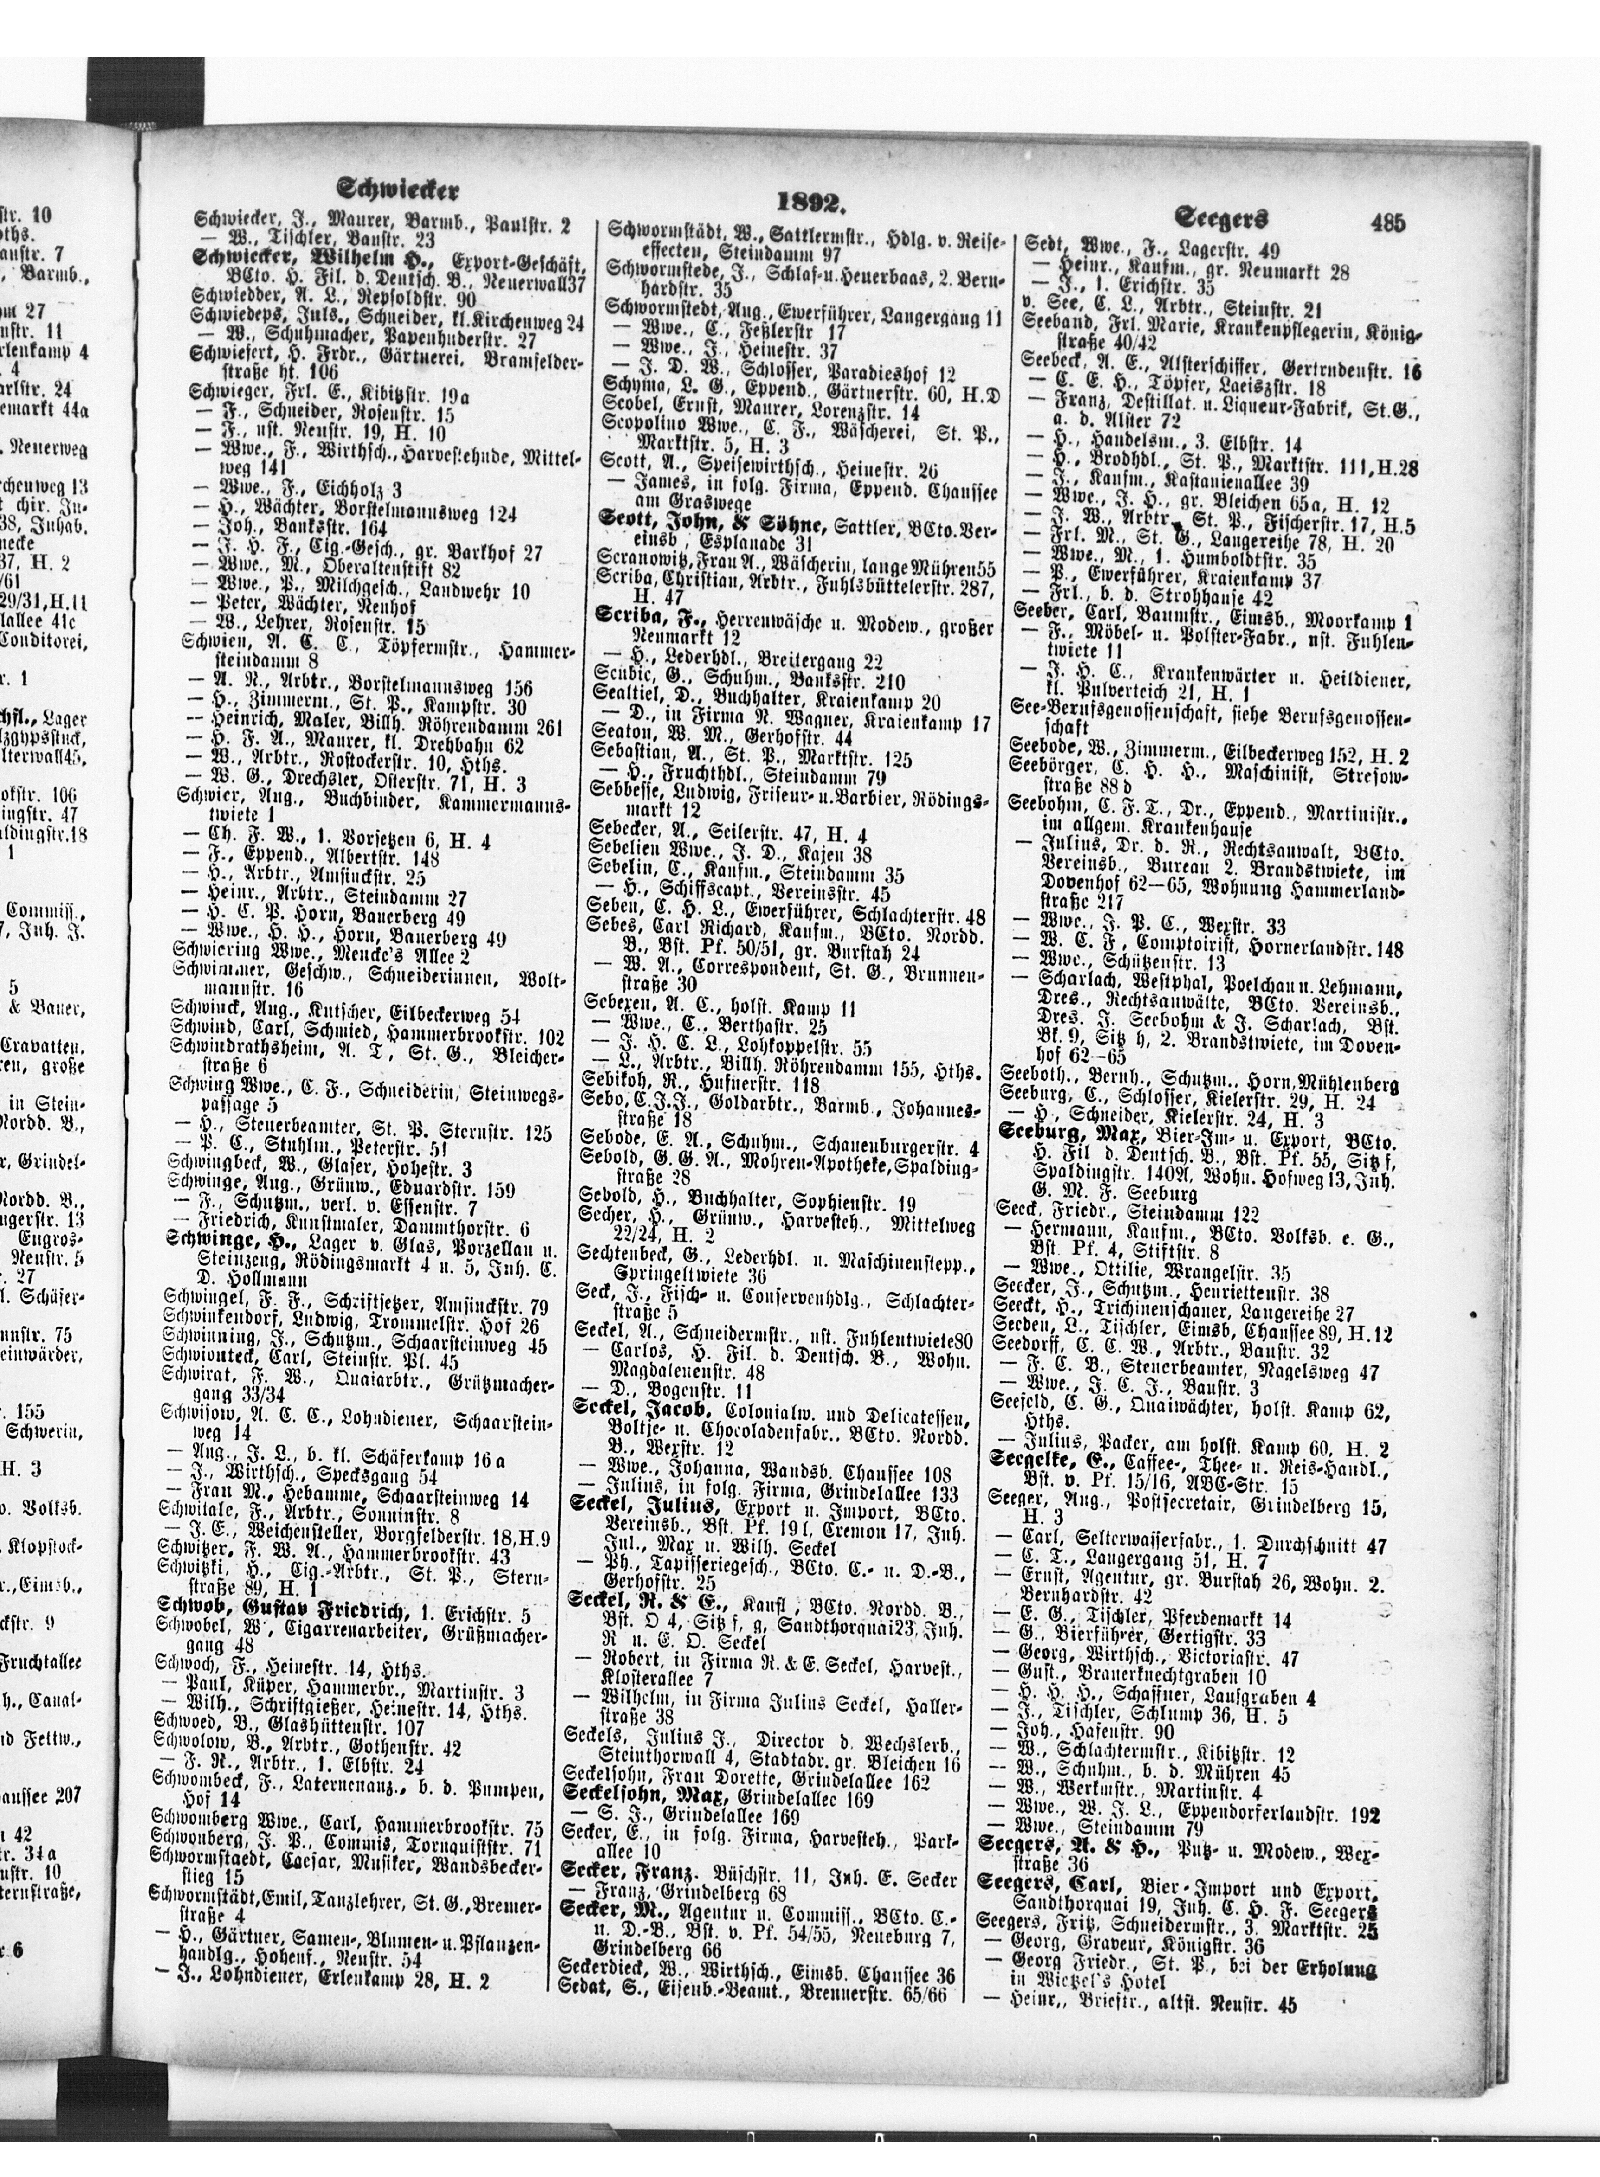 str. 10
oths.
anstr. 7
, Barmb.,
m 27
nstr. 11
rlenkamp 4
. 4
arlstr. 24
emarkt 44a
. Neuerweg
rchenweg 13
t chir. In-
38, Inhab.
necke
37, H. 2
/61
29/31, H.11
lallee 41c
Conditorei,
r. 1
chfl., Lager
lzgypsstuck,
lterwall45,
okstr. 106
ingstr. 47
aldingstr.18
1
Commiss.,
7, Inh. J.
5
& Bauer,
Cravatten.
ren, große
in Stein-
Nordd. B.,
r, Grindel-
Nordd. B.,
ugerstr. 13
Engros-
Neustr. 5
r. 27
l. Schäfer-
nnstr. 75
einwärder,
r. 155
Schwerin,
H. 3
o. Volksb.
Klopstock-
r., Eimsb.,
ckstr. 9
Fruchtallee
h., Canal-
nd Fettw.,
aussee 207
n 42
tr. 34a
nstr. 10
ternstraße,
e 6
Schwiecker
1892.
Seegers
485
Schwiecker, J., Maurer, Barmb., Paulstr. 2
— W., Tischler, Baustr. 23
Schwiecker, Wilhelm H., Export-Geschäft,
BCto. H. Fil. d. Deutsch. B., Neuerwall37
Schwiedder, A. L., Repsoldstr. 90
Schwiedeps, Juls., Schneider, kl. Kirchenweg 24
— W., Schuhmacher, Papenhuderstr. 27
Schwiefert, H. Frdr., Gärtnerei, Bramfelder-
straße ht. 106
Schwieger, Frl. E., Kibitzstr. 19a
— F., Schneider, Rosenstr. 15
— F., nst. Neustr. 19, H. 10
— Wwe., F., Wirthsch., Harvestehude, Mittel-
weg 141
— Wwe., F., Eichholz 3
— H., Wächter, Borstelmannsweg 124
— Joh., Banksstr. 164
— J. H. F., Cig.-Gesch., gr. Barkhof 27
— Wwe., M., Oberaltenstift 82
— Wwe., P., Milchgesch., Landwehr 10
— Peter, Wächter, Neuhof
— W., Lehrer, Rosenstr. 15
Schwien, A. C. C., Töpfermstr., Hammer-
steindamm 8
— A. N., Arbtr., Borstelmannsweg 156
— H., Zimmerm., St. P., Kampstr. 30
— Heinrich, Maler, Billh. Röhrendamm 261
— H. F. A., Maurer, kl. Drehbahn 62
— W., Arbtr., Rostockerstr. 10, Hths.
— W. G., Drechsler, Osterstr. 71, H. 3
Schwier, Aug., Buchbinder, Kammermanns-
twiete 1
— Ch. F. W., 1. Vorsetzen 6, H. 4
— F., Eppend., Albertstr. 148
— H., Arbtr., Amsinckstr. 25
— Heinr., Arbtr., Steindamm 27
— H. C. P. Horn, Bauerberg 49
— Wwe., H. H., Horn, Bauerberg 49
Schwiering Wwe., Mencke's Allee 2
Schwimmer, Geschw., Schneiderinnen, Wolt-
mannstr. 16
Schwinck, Aug., Kutscher, Eilbeckerweg 54
Schwind, Carl, Schmied, Hammerbrookstr. 102
Schwindrathsheim, A. T., St. G., Bleicher-
straße 6
Schwing Wwe., C. F., Schneiderin, Steinwegs-
passage 5
— H., Steuerbeamter, St. P. Sternstr. 125
— P. C., Stuhlm., Peterstr. 51
Schwingbeck, W., Glaser, Hohestr. 3
Schwinge, Aug., Grünw., Eduardstr. 159
— F., Schutzm., verl. v. Essenstr. 7
— Friedrich, Kunstmaler, Dammthorstr. 6
Schwinge, H., Lager v. Glas, Porzellan u.
Steinzeug, Rödingsmarkt 4 u. 5, Inh. C.
D. Hollmann
Schwingel, F. F., Schriftsetzer, Amsinckstr. 79
Schwinkendorf, Ludwig, Trommelstr. Hof 26
Schwinning, J., Schutzm., Schaarsteinweg 45
Schwionteck, Carl, Steinstr. Pl. 45
Schwirat, F. W., Quaiarbtr., Grützmacher-
gang 33/34
Schwisow, A. C. C., Lohndiener, Schaarstein-
weg 14
— Aug., J. L., b. kl. Schäferkamp 16a
— J., Wirthsch., Specksgang 54
— Frau M., Hebamme, Schaarsteinweg 14
Schwitale, F., Arbtr., Sonninstr. 8
— J. E., Weichensteller, Borgfelderstr. 18, H.9
Schwitzer, F. W. A., Hammerbrookstr. 43
Schwitzki, H., Cig.-Arbtr., St. P., Stern-
straße 89, H. 1
Schwob, Gustav Friedrich, 1. Erichstr. 5
Schwobel, W., Cigarrenarbeiter, Grützmacher-
gang 48
Schwoch, F., Heinestr. 14, Hths.
— Paul, Küper, Hammerbr., Martinstr. 3
— Wilh., Schriftgießer, Heinestr. 14, Hths.
Schwoed, B., Glashüttenstr. 107
Schwolow, B., Arbtr., Gothenstr. 42
— F. R., Arbtr., 1. Elbstr. 24
Schwombeck, F., Laternenanz., b. d. Pumpen,
Hof 14
Schwomberg Wwe., Carl, Hammerbrookstr. 75
Schwonberg, J. P., Commis, Tornquiststr. 71
Schwormstaedt, Caesar, Musiker, Wandsbecker-
stieg 15
Schwormstädt, Emil, Tanzlehrer, St. G., Bremer-
straße 4
— H., Gärtner, Samen-, Blumen- u. Pflanzen-
handlg., Hohenf., Neustr. 54
— J., Lohndiener, Erlenkamp 28, H. 2
Schwormstädt, W., Sattlermstr., Hdlg. v. Reise-
effecten, Steindamm 97
Schwormstede, J., Schlaf- u. Heuerbaas, 2. Bern-
hardstr. 35
Schwormstedt, Aug., Ewerführer, Langergang 11
— Wwe., C., Feßlerstr 17
— Wwe., J., Heinestr. 37
— J. D. W., Schlosser, Paradieshof 12
Schyma, L. G., Eppend., Gärtnerstr. 60, H.D
Scobel, Ernst, Maurer, Lorenzstr. 14
Scopolino Wwe., C. F., Wäscherei, St. P.,
Marktstr. 5, H. 3
Scott, A., Speisewirthsch., Heinestr. 26
— James, in folg. Firma, Eppend. Chaussee
am Graswege
Scott, John, & Söhne, Sattler, BCto. Ver-
einsb., Esplanade 31
Scranowitz, Frau A., Wäscherin, lange Mühren55
Scriba, Christian, Arbtr., Fuhlsbüttelerstr. 287,
H. 47
Scriba, F., Herrenwäsche u. Modew., großer
Neumarkt 12
— H., Lederhdl., Breitergang 22
Scubic, G., Schuhm., Banksstr. 210
Sealtiel, D., Buchhalter, Kraienkamp 20
— D., in Firma N. Wagner, Kraienkamp 17
Seaton, W. M., Gerhofstr. 44
Sebastian, A., St. P., Marktstr. 125
— H., Fruchthdl., Steindamm 79
Sebbesse, Ludwig, Friseur- u. Barbier, Rödings-
markt 12
Sebecker, A., Seilerstr. 47, H. 4
Sebelien Wwe., J. D., Kajen 38
Sebelin, C., Kaufm., Steindamm 35
— H., Schiffscapt., Vereinsstr. 45
Seben, C. H. L., Ewerführer, Schlachterstr. 48
Sebes, Carl Richard, Kaufm., BCto. Nordd.
B., Bst. Pf. 50/51, gr. Burstah 24
— W. A., Correspondent, St. G., Brunnen-
straße 30
Sebexen, A. C., holst. Kamp 11
— Wwe., C., Berthastr. 25
— J. H. C. L., Lohkoppelstr. 55
— L., Arbtr., Billh. Röhrendamm 155, Hths.
Sebikoh, R., Hufnerstr. 118
Sebo, C.J.J., Goldarbtr., Barmb., Johannes-
straße 18
Sebode, E. A., Schuhm., Schauenburgerstr. 4
Sebold, G. G. A., Mohren-Apotheke, Spalding-
straße 28
Sebold, H., Buchhalter, Sophienstr. 19
Secher, H., Grünw., Harvesteh., Mittelweg
22/24, H. 2
Sechtenbeck, G., Lederhdl. u. Maschinenstepp.,
Springeltwiete 36
Seck, J., Fisch- u. Conservenhdlg., Schlachter-
straße 5
Seckel, A., Schneidermstr., nst. Fuhlentwiete80
— Carlos, H. Fil. d. Deutsch. B., Wohn.
Magdalenenstr. 48
— D., Bogenstr. 11
Seckel, Jacob, Colonialw. und Delicatessen,
Boltje- u. Chocoladenfabr., BCto. Nordd.
B., Wexstr. 12
— Wwe., Johanna, Wandsb. Chaussee 108
— Julius, in folg. Firma, Grindelallee 133
Seckel, Julius, Export u. Import, BCto.
Vereinsb., Bst. Pf. 19 l, Cremon 17, Inh.
Jul., Max u. Wilh. Seckel
— Ph., Tapisseriegesch., BCto. C.- u. D.-B.,
Gerhofstr. 25
Seckel, R. & E., Kaufl., BCto. Nordd. B.,
Bst. O 4, Sitz f, g, Sandthorquai23, Inh.
R. u. E. O. Seckel
— Robert, in Firma R. & E. Seckel, Harvest.,
Klosterallee 7
— Wilhelm, in Firma Julius Seckel, Haller-
straße 38
Seckels, Julius J., Director d. Wechslerb.,
Steinthorwall 4, Stadtadr. gr. Bleichen 16
Seckelsohn, Frau Dorette, Grindelallee 162
Seckelsohn, Max, Grindelallee 169
— S. J., Grindelallee 169
Secker, E., in folg. Firma, Harvesteh., Park-
allee 10
Secker, Franz. Büschstr. 11, Inh. E. Secker
— Franz, Grindelberg 68
Secker, M., Agentur u. Commiss., BCto. C.-
u. D.-B., Bst. v. Pf. 54/55, Neueburg 7,
Grindelberg 66
Seckerdieck, W., Wirthsch., Eimsb. Chaussee 36
Sedat, S., Eisenb.-Beamt., Brennerstr. 65/66
Sedt, Wwe., F., Lagerstr. 49
— Heinr., Kaufm., gr. Neumarkt 28
— J., 1. Erichstr. 35
v. See, C. L., Arbtr., Steinstr. 21
Seeband, Frl. Marie, Krankenpflegerin, König-
straße 40/42
Seebeck, A. E., Alsterschiffer, Gertrudenstr. 16
— C. E. H., Töpfer, Laeiszstr. 18
— Franz, Destillat. u. Liqueur-Fabrik, St.G.,
a. d. Alster 72
— H., Handelsm., 3. Elbstr. 14
— H., Brodhdl., St. P., Marktstr. 111, H.28
— J., Kaufm., Kastanienallee 39
— Wwe., J. H., gr. Bleichen 65a, H. 12
— J. W., Arbtr., St. P., Fischerstr. 17, H.5
— Frl. M., St. G., Langereihe 78, H. 20
— Wwe., M., 1. Humboldtstr. 35
— P., Ewerführer, Kraienkamp 37
— Frl., b. d. Strohhause 42
Seeber, Carl, Baumstr., Eimsb., Moorkamp 1
— F., Möbel- u. Polster-Fabr., nst. Fuhlen-
twiete 11
— J. H. C., Krankenwärter u. Heildiener,
kl. Pulverteich 21, H. 1
See-Berufsgenossenschaft, siehe Berufsgenossen-
schaft
Seebode, W., Zimmerm., Eilbeckerweg 152, H. 2
Seebörger, C. H. H., Maschinist, Stresow-
straße 88 d
Seebohm, C. F. T., Dr., Eppend., Martinistr.,
im allgem. Krankenhause
— Julius, Dr. d. R., Rechtsanwalt, BCto.
Vereinsb., Bureau 2. Brandstwiete, im
Dovenhof 62—65, Wohnung Hammerland-
straße 217
— Wwe., J. P. C., Wexstr. 33
— W. C. F., Comptoirist, Hornerlandstr. 148
— Wwe., Schützenstr. 13
— Scharlach, Westphal, Poelchau u. Lehmann,
Dres., Rechtsanwälte, BCto. Vereinsb.,
Dres. J. Seebohm & J. Scharlach, Bst.
Bk. 9, Sitz h, 2. Brandstwiete, im Doven-
hof 62—65
Seeboth., Bernh., Schutzm., Horn, Mühlenberg
Seeburg, C., Schlosser, Kielerstr. 29, H. 24
— H., Schneider, Kielerstr. 24, H. 3
Seeburg, Max, Bier-Im- u. Export, BCto.
H. Fil d. Deutsch. B., Bst. Pf. 55, Sitz f,
Spaldingstr. 140A, Wohn. Hofweg 13, Inh.
G. M. F. Seeburg
Seeck, Friedr., Steindamm 122
— Hermann, Kaufm., BCto. Volksb. e. G.,
Bst. Pf. 4, Stiftstr. 8
— Wwe., Ottilie, Wrangelstr. 35
Seecker, J., Schutzm., Henriettenstr. 38
Seeckt, H., Trichinenschauer, Langereihe 27
Seeden, L., Tischler, Eimsb, Chaussee 89, H.12
Seedorff, C. C. W., Arbtr., Baustr. 32
— F. C. B., Steuerbeamter, Nagelsweg 47
— Wwe., J. C. J., Baustr. 3
Seefeld, C. G., Quaiwächter, holst. Kamp 62,
Hths.
— Julius, Packer, am holst. Kamp 60, H. 2
Seegelke, E., Caffee-, Thee- u. Reis-Handl.,
Bst. v. Pf. 15/16, ABC-Str. 15
Seeger, Aug., Postsecretair, Grindelberg 15,
H. 3
— Carl, Selterwasserfabr., 1. Durchschnitt 47
— C. T., Langergang 51, H. 7
— Ernst, Agentur, gr. Burstah 26, Wohn. 2.
Bernhardstr. 42
— E. G., Tischler, Pferdemarkt 14
— G., Bierführer, Gertigstr. 33
— Georg, Wirthsch., Victoriastr. 47
— Gust., Brauerknechtgraben 10
— H. H. H., Schaffner, Laufgraben 4
— J., Tischler, Schlump 36, H. 5
— Joh., Hafenstr. 90
— W., Schlachtermstr., Kibitzstr. 12
— W., Schuhm., b. d. Mühren 45
— W., Werkmstr., Martinstr. 4
— Wwe., W. J. L., Eppendorferlandstr. 192
— Wwe., Steindamm 79
Seegers, A. & H., Putz- u. Modew., Wex-
straße 36
Seegers, Carl, Bier-Import und Export,
Sandthorquai 19, Inh. C. H. F. Seegers
Seegers, Fritz, Schneidermstr., 3. Marktstr. 25
— Georg, Graveur, Königstr. 36
— Georg Friedr., St. P., bei der Erholung
in Wietzel's Hotel
— Heinr., Brieftr., altst. Neustr. 45